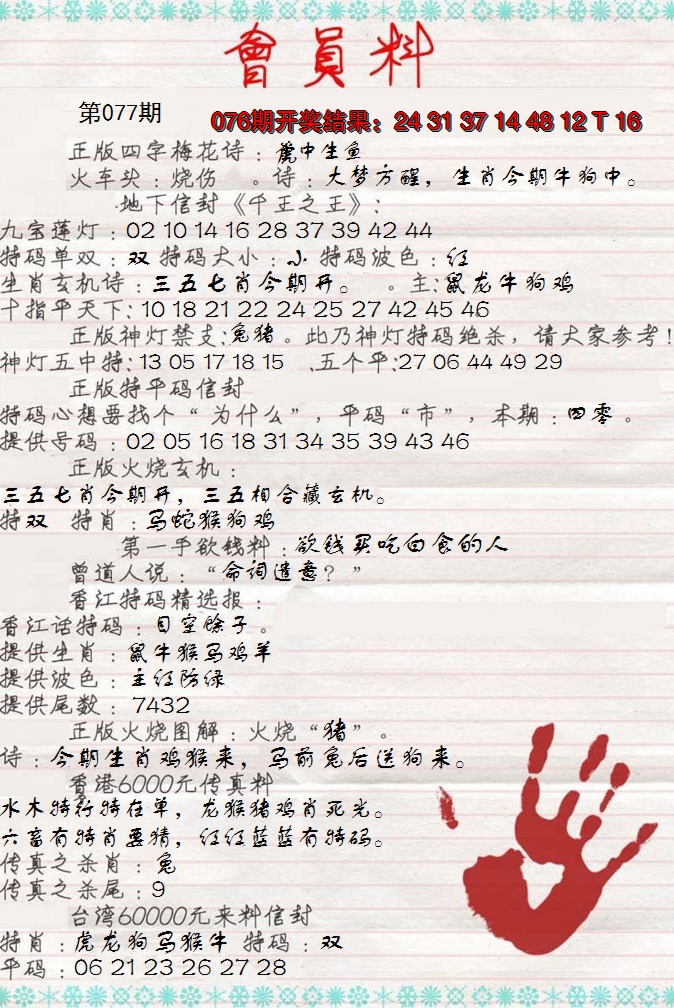 會員料
第077期
076期开奖结果：24 31 37 14 48 12 T 16
正版四字梅花诗：虎中生鱼
火车头：烧伤 。诗：大梦方醒，生肖今期牛狗中。
地下信封《千王之王》：
九宝莲灯：02 10 14 16 28 37 39 42 44
特码单双：双 特码大小：小 特码波色：红
生肖玄机诗：三五七肖今期开。 。主：鼠龙牛狗鸡
十指平天下：10 18 21 22 24 25 27 42 45 46
正版神灯禁支：兔猪。此乃神灯特码绝杀，请大家参考！
神灯五中特：13 05 17 18 15 .五个平：27 06 44 49 29
正版特平码信封
特码心想要找个“为什么”，平码“市”，本期：四零。
提供号码：02 05 16 18 31 34 35 39 43 46
正版火烧玄机：
三五七肖今期开，三五相合藏玄机。
特双 特肖：马蛇猴狗鸡
第一手欲钱料：欲钱买吃白食的人
曾道人说：“命词遣意？”
香江特码精选报：
香江话特码：目空馀子。
提供生肖：鼠牛猴马鸡羊
提供波色：主红防绿
提供尾数：7432
正版火烧图解：火烧“猪”。
诗：今期生肖鸡猴来，马前兔后送狗来。
香港6000元传真料
水木特行特在单，龙猴猪鸡肖死光。
六畜有特肖要猜，红红蓝蓝有特码。
传真之杀肖：兔
传真之杀尾：9
台湾60000元来料信封
特肖：虎龙狗马猴牛 特码：双
平码：06 21 23 26 27 28